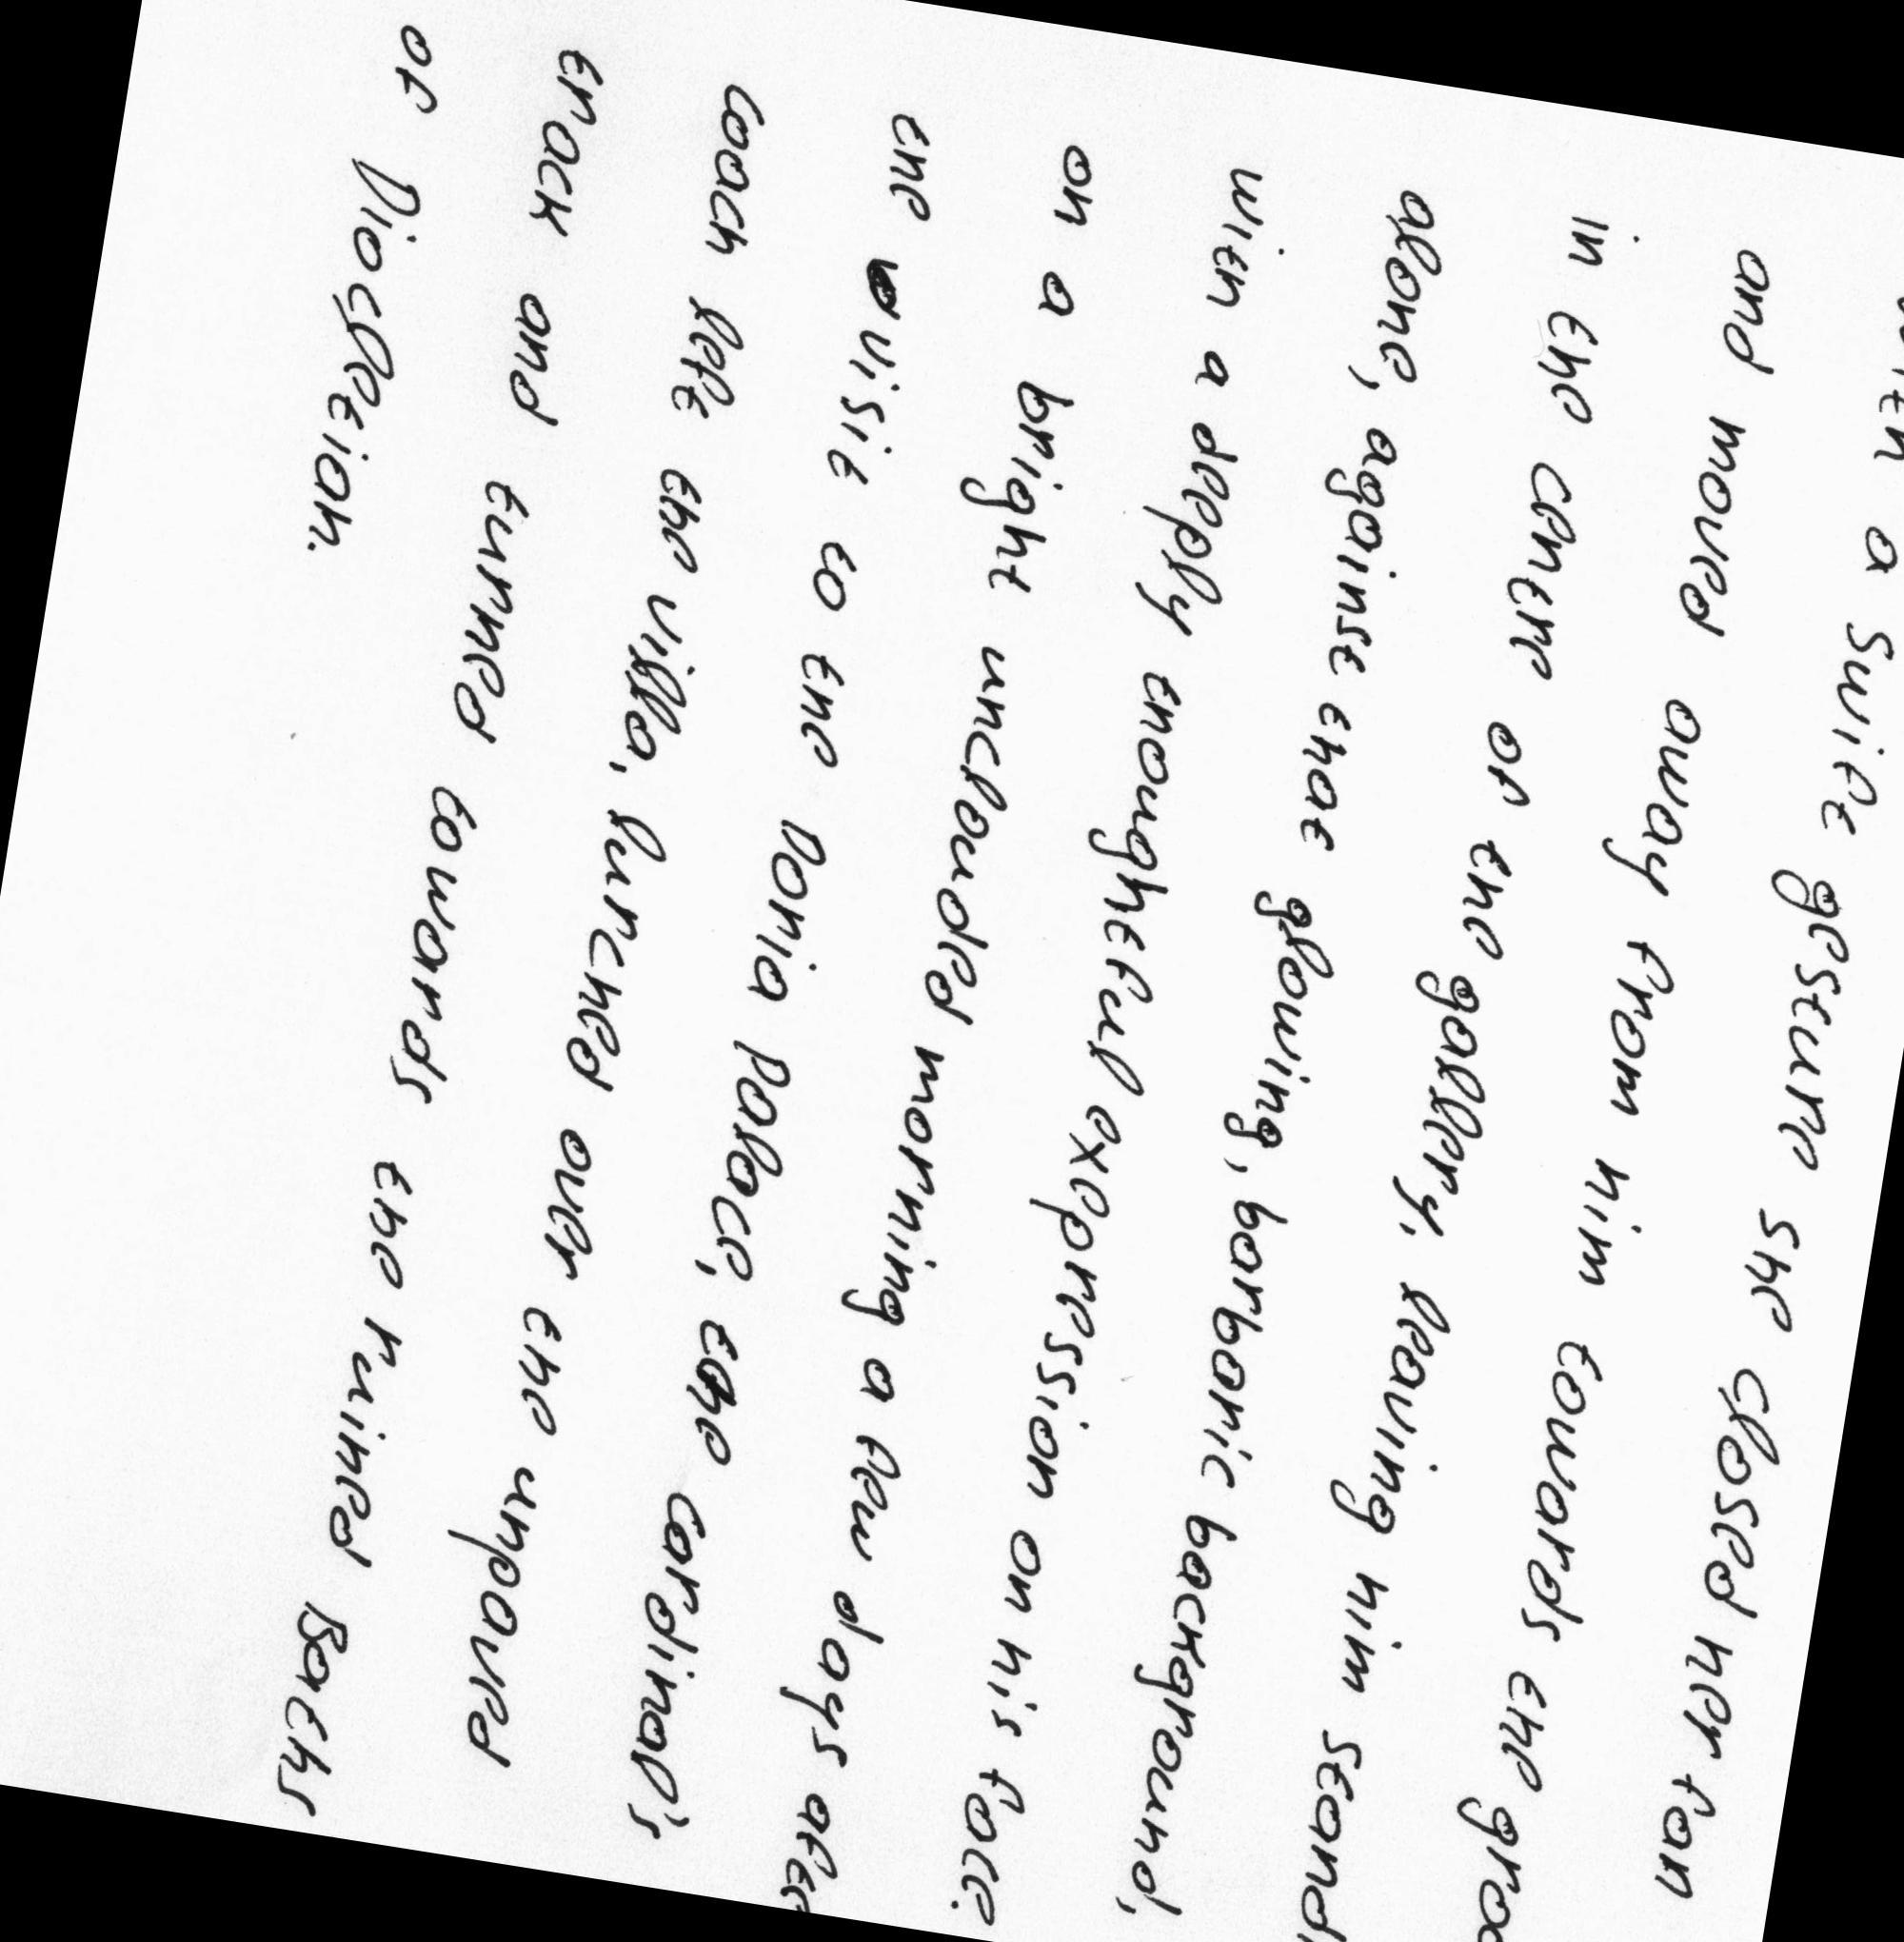 with a swift gesture she closed her fan
and moved away from him towards the grea
in the centre of the gallery, leaving him stand
alone, against that glowing, barbaric background,
with a deeply thoughtful expression on his face.
on a bright unclouded morning a few days after
the visit to the Doria Palace, the cardinal's
coach left the villa, lurched over the unpaved
track and turned towards the ruined Baths
of Diocletian.